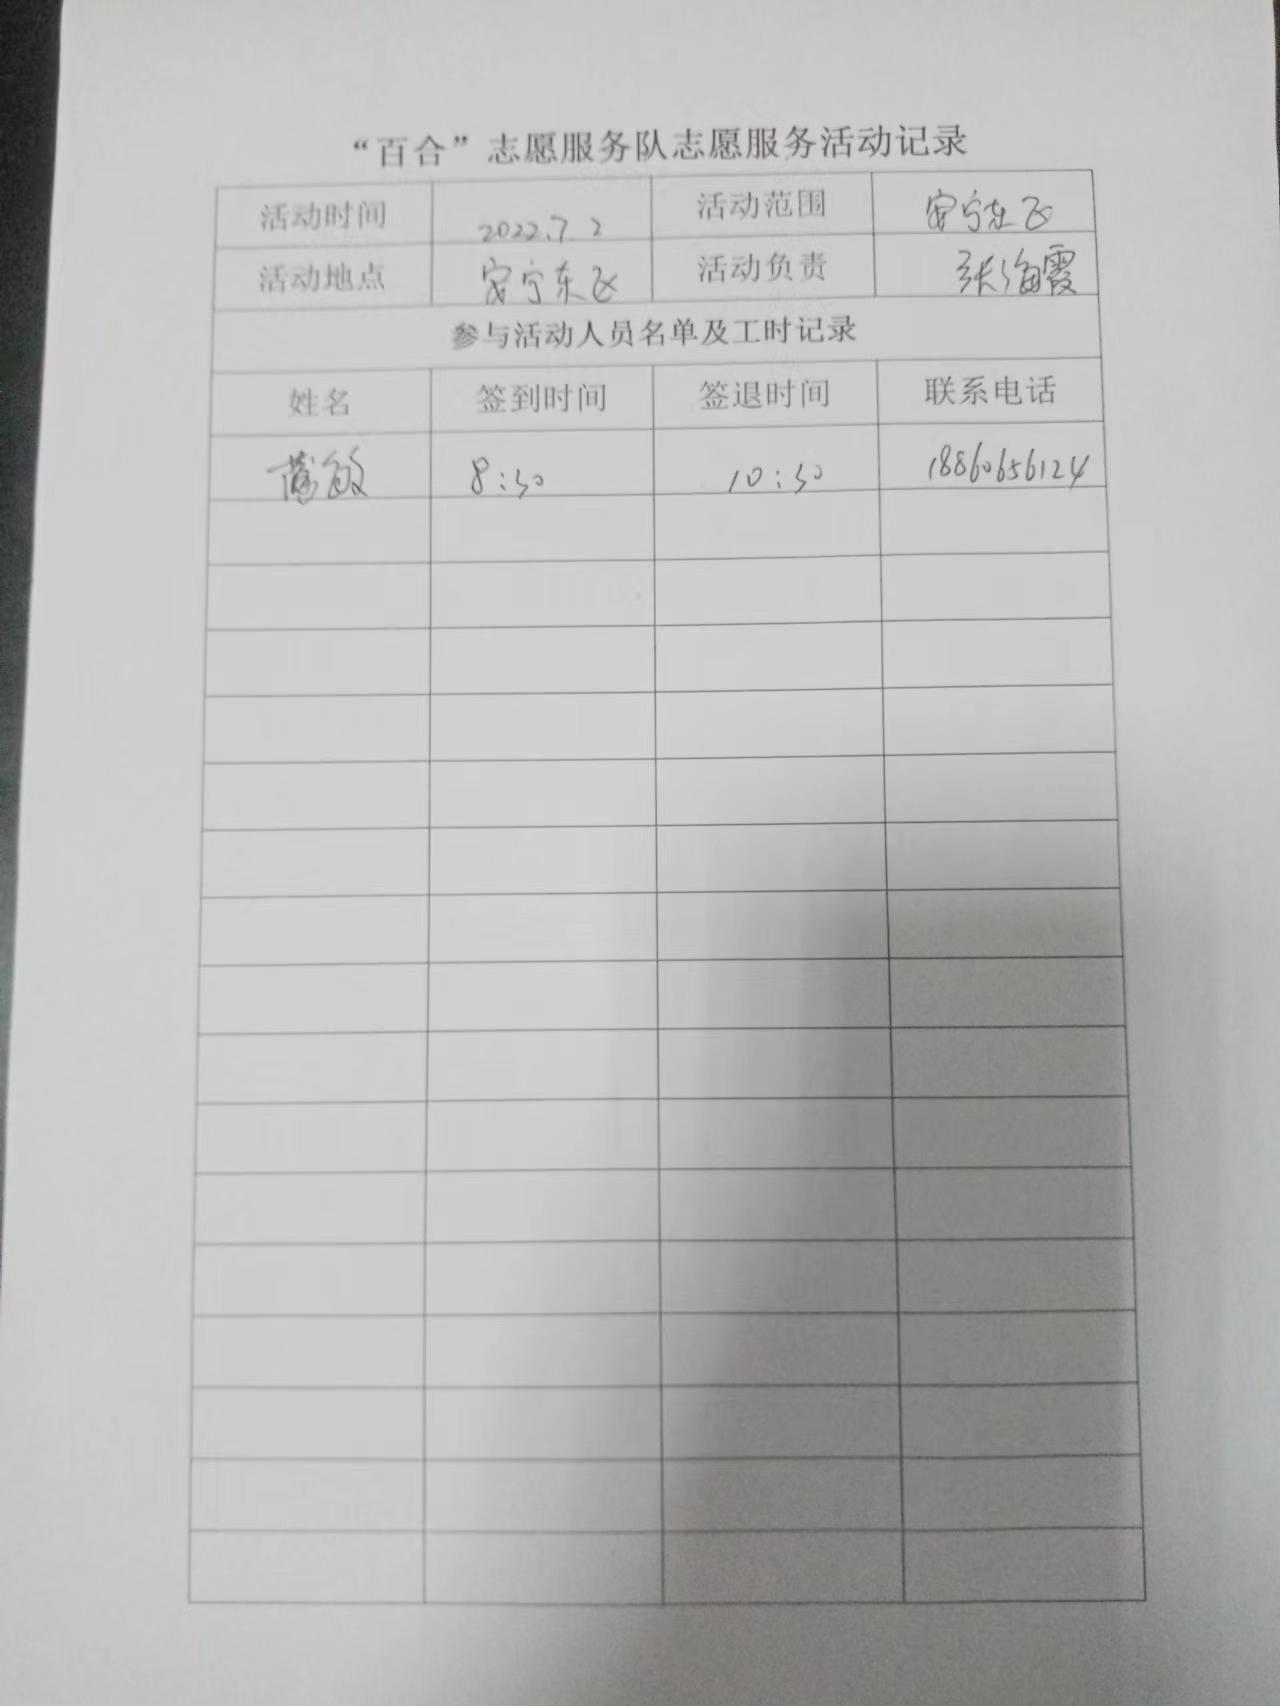 “百合”志愿服务队志愿服务活动记录
活动时间 2022.7.2 活动范围 安宁东区
活动地点 安宁东区 活动负责 张海霞
参与活动人员名单及工时记录
姓名 签到时间 签退时间 联系电话
敏 8:30 10:30 18860656124